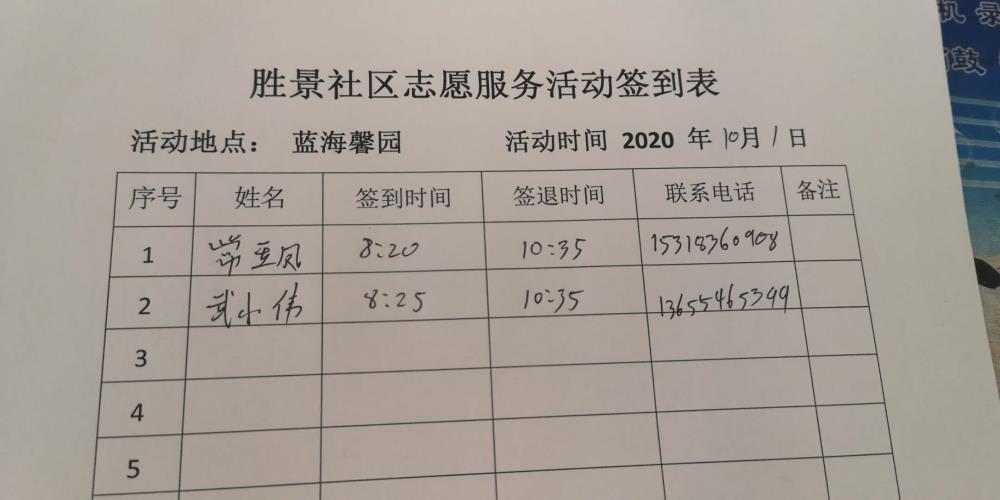 机 录
鼓
胜景社区志愿服务活动签到表
活动地点： 蓝海馨园 活动时间 2020 年 10月 1 日
序号 姓名 签到时间 签退时间 联系电话 备注
1 常亚凤 8:20 10:35 15318360908
2 武小伟 8:25 10:35 13655465399
3
4
5